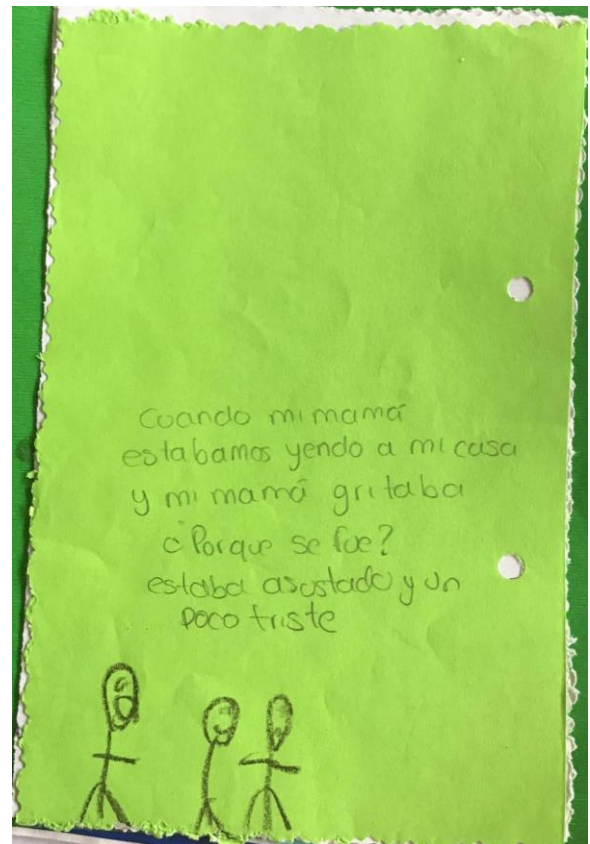 Cuando mi mamá
estabamos yendo a mi casa
y mi mamá gritaba
¿Porque se fue?
estaba asustado y un
poco triste